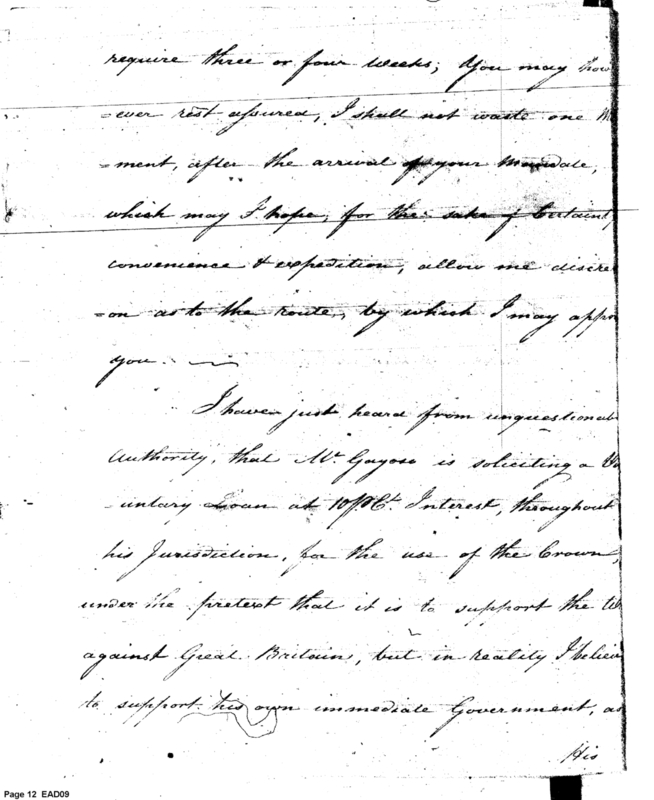 require three or four weeks; You may how
=ever rest assured, I shall not waste one M
=ment, after the arrival of your Mandate,
which may I hope, for the sake of Certaint
convenience & expedition, allow me discre
=on as to the route, by which I may appro
you.
I have just heard from unquestionab
Authority, that Mr. Gayoso is soliciting a Vo
-untary Loan at 10 P Ct. Interest, throughout
his Jurisdiction, for the use of the Crown,
under the pretext that it is to support the
against Great Britain, but in reality I believ
to support his own immediate Government, as
His
Page 12 EAD09